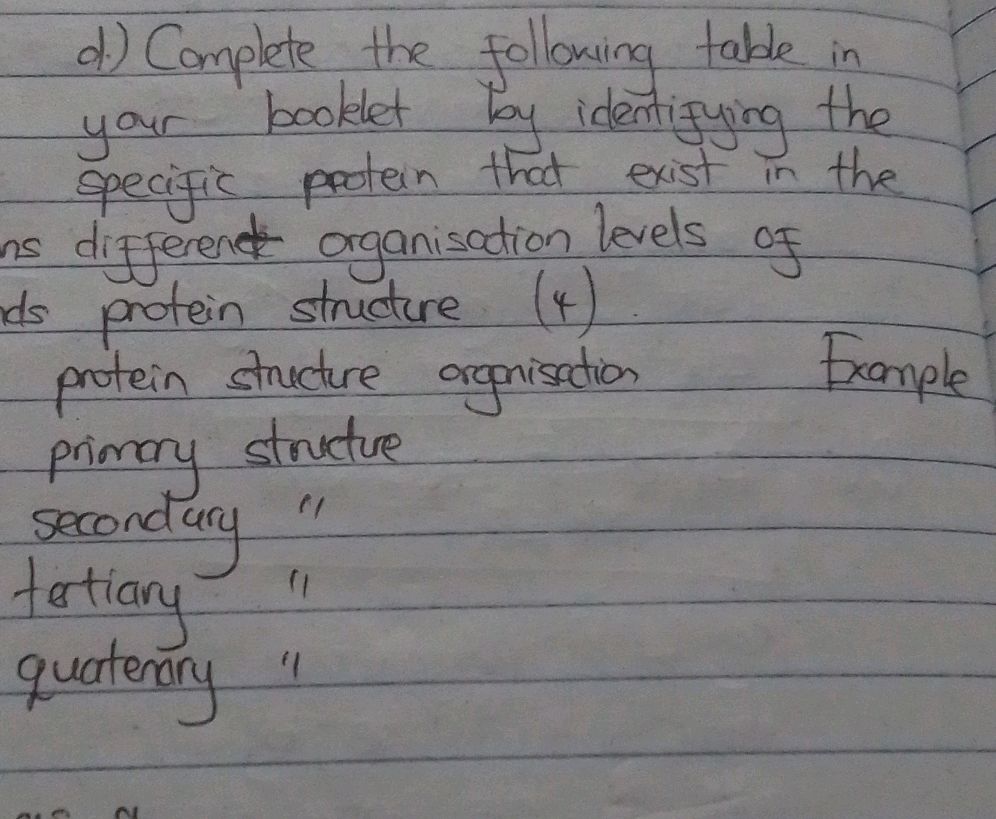 d.) Complete the following table in
your booklet by identifying the
specific protein that exist in the
ns different organisation levels of
ds protein structure (4).
protein structure organisation Example
primary structure
secondary "
tertiary "
quaternary "